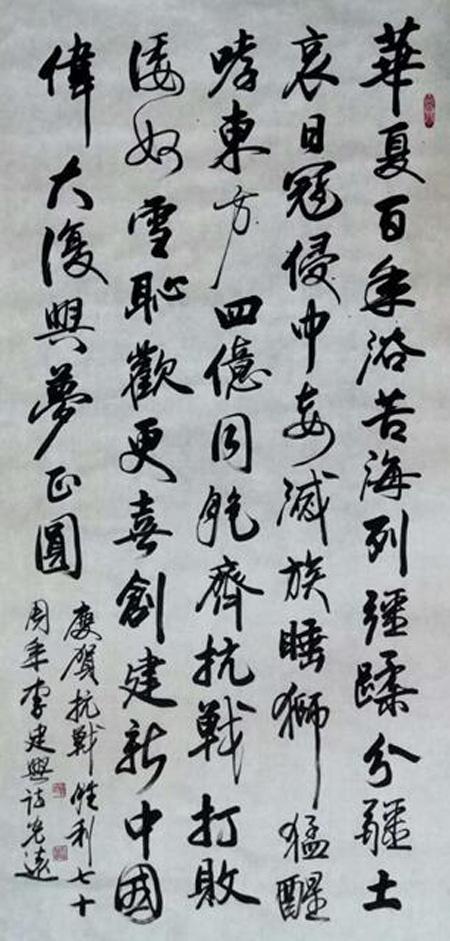 華夏百年浴苦海列彊蹂分疆土
哀日寇侵中妄滅族睡獅猛醒
哮東方四億同胞齊抗戰打敗
倭奴雪恥歡更喜創建新中國
偉大復興夢正圓
慶賀抗戰勝利七十
周年李建興詩光遠